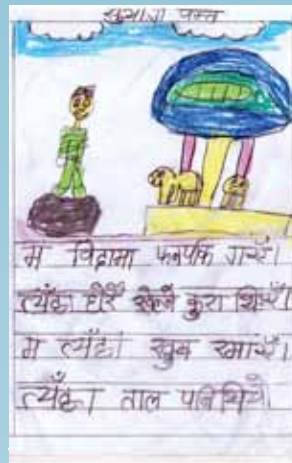 म विदामा फनपार्क गाएँ।
त्यँहा धेरै खेल्ने कुरा थिए।
म त्यँहा खुब रमाएँ।
त्यँहा ताल पनि थियो।